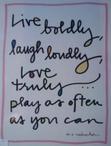 Live boldly,
laugh loudly,
Love
truly...
play as often
as you can